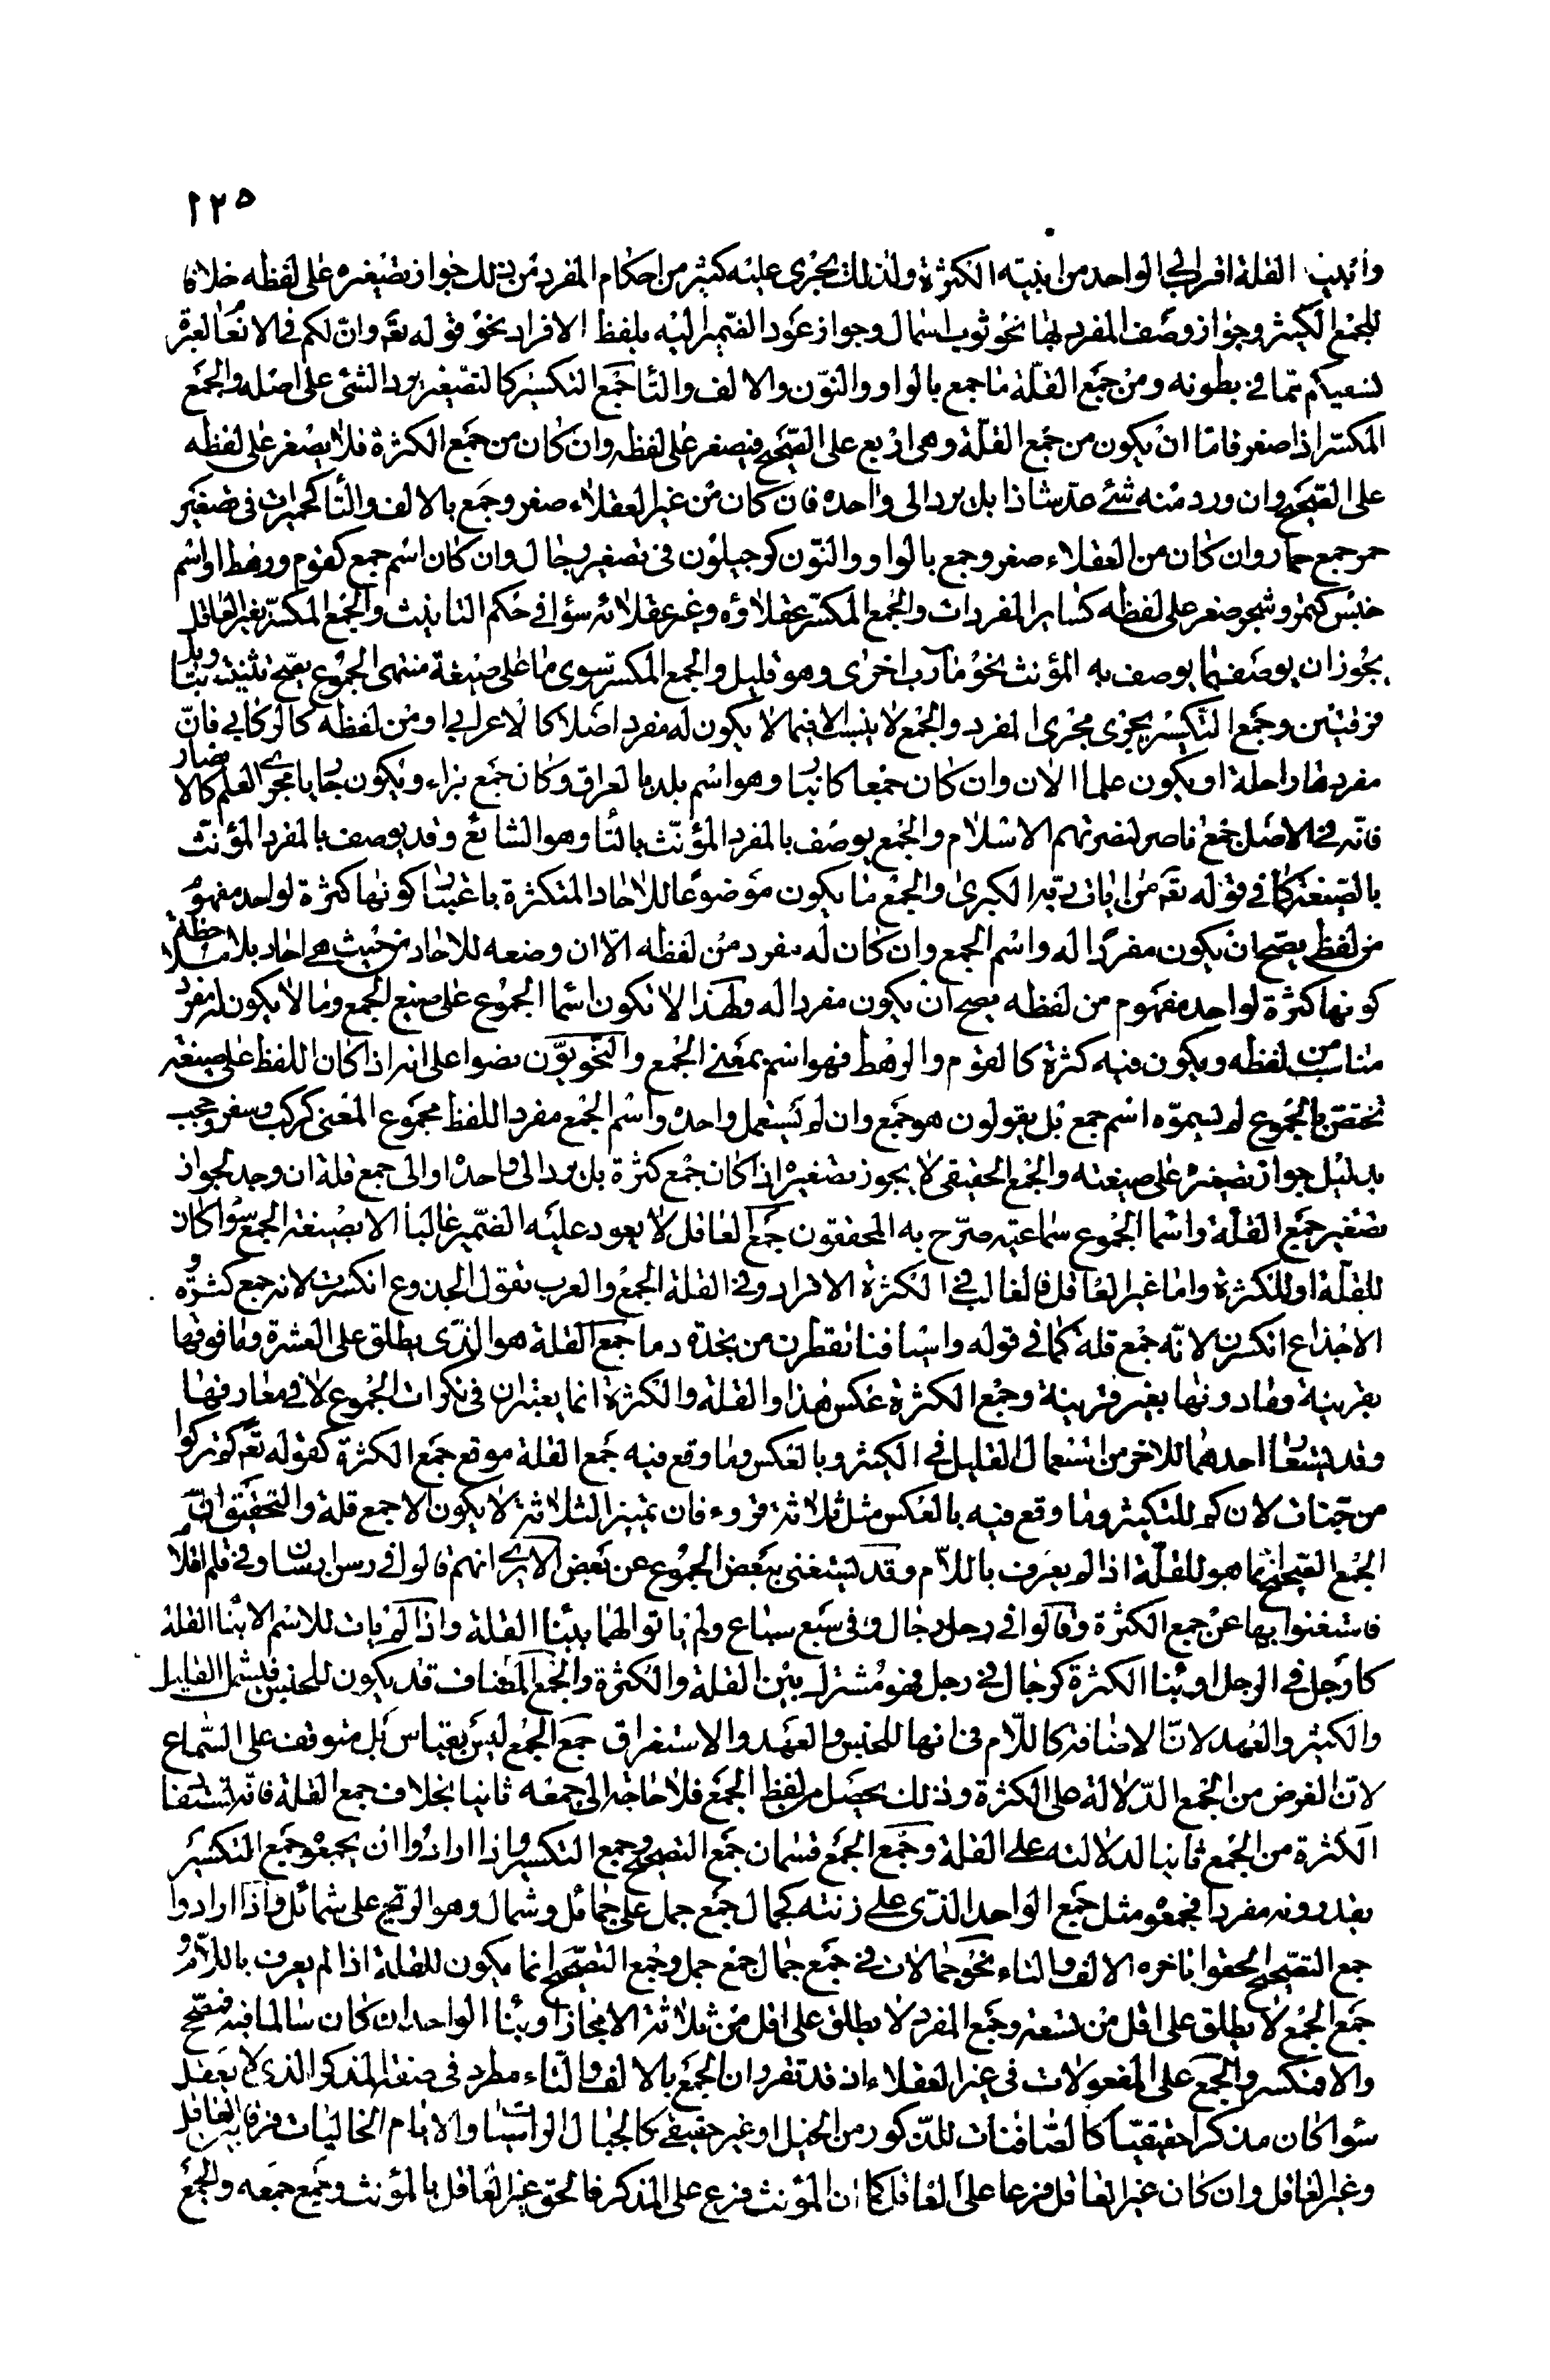 ١٢٥
وابنية القلة اقرب الى الواحد من ابنية الكثرة ولذلك يجرى عليه كثير من احكام المفرد من ذلك جواز تصغيره على لفظه خلافا
للجمع الكثير وجواز وصف المفرد بها نحو ثوب اسمال وجواز عود الضمير اليه بلفظ الافراد نحو قوله تع وان لكم فى الانعام لعبرة
نسقيكم مما فى بطونه ومن جمع القلة ما جمع بالواو والنون والالف والتا جمع التكسير كالتصغير يرد الشئ على اصله والجمع
المكسر اذا صغر فاما ان يكون من جمع القلة وهى اربع على الصحيح فيصغر على لفظه وان كان من جمع الكثرة فلا يصغر على لفظه
على الصحيح وان ورد منه شئ عد شاذا بل يرد الى واحده فان كان من غير العقلاء صغر وجمع بالالف والتا كحميرات فى تصغير
حمر جمع حمار وان كان من العقلاء صغر وجمع بالواو والنون كرجيلون فى تصغير رجال وان كان اسم جمع كقوم ورهط او اسم
جنس كتمر وشجر صغر على لفظه كساير المفردات والجمع المكسر عقلاؤه وغير عقلائه سواء فى حكم التانيث والجمع المكسر لغير العاقل
يجوز ان يوصف بما يوصف به المؤنث نحو مآرب اخرى وهو قليل والجمع المكسر سوى ما على صيغة منتهى الجموع يصح تثنيته بتاويل
فرقتين وجمع التكسير يجرى مجرى المفرد والجمع لا ينسب الا فيما لا يكون له مفرد اصلا كالاعرابى او من لفظه كالركابى فان
مفردها راحلة او يكون علما الان وان كان جمعا كانبار وهو اسم بلد بالعراق وكان جمع نبراء ويكون جاريا مجرى العلم كالانصار
فانه فى الاصل جمع ناصر لنصرتهم الاسلام والجمع يوصف بالمفرد المؤنث بالتا وهو الشائع وقد يوصف بالمفرد المؤنث
بالصيغة كما فى قوله تع من ايات ربه الكبرى والجمع ما يكون موضوعا للاحاد المتكثرة باعتبار كونها كثرة لواحد مفهوم
من لفظ يصح ان يكون مفردا له واسم الجمع وان كان له مفرد من لفظه الا ان وضعه للاحاد من حيث هى احاد بلا ملاحظة
كونها كثرة لواحد مفهوم من لفظه يصح ان يكون مفردا له ولهذا لا تكون اسما الجموع على صيغ الجمع وما لا يكون له مفرد
مناسب من لفظه ويكون فيه كثرة كالقوم والرهط فهو اسم بمعنى الجمع والنحويون نصوا على انه اذا كان اللفظ على صيغة
تختص بالجموع لم يسموه اسم جمع بل يقولون هو جمع وان لم يستعمل واحده واسم الجمع مفرد اللفظ مجموع المعنى كركب وسفر وحجب
بدليل جواز تصغيره على صيغته والجمع الحقيقى لا يجوز تصغيره اذا كان جمع كثرة بل يرد الى واحده او الى جمع قلة ان وجد لجواز
تصغير جمع القلة واسما الجموع سماعية صرح به المحققون جمع العاقل لا يعود عليه الضمير غالبا الا بصيغة الجمع سواء كان
للقلة او للكثرة واما غير العاقل فالغالب فى الكثرة الافراد وفى القلة الجمع والعرب تقول الجذوع انكسرت لانه جمع كثرة و
الاجذاع انكسرن لانه جمع قلة كما فى قوله واسيافنا يقطرن من نجدة دما جمع القلة هو الذى يطلق على العشرة وما فوقها
بقرينة وما دونها بغير قرينة وجمع الكثرة عكس هذا والقلة والكثرة انما يعتبران فى نكرات الجموع لا فى معارفها
وقد يستعار احدهما للاخر من استعمال القليل فى الكثير وبالعكس وما وقع فيه جمع القلة موقع جمع الكثرة كقوله تع كم تركوا
من جنات لان كم للتكثير وما وقع فيه بالعكس مثل ثلاثة قروء فان تمييز الثلاثة لا يكون الا جمع قلة والتحقيق ان
الجمع الصحيح انما هو للقلة اذا لم يعرف باللام وقد يستغنى ببعض الجموع عن بعض الا يرى انهم قالوا فى رسن ارسان وفى قلم اقلام
فاستغنوا بها عن جمع الكثرة وقالوا فى رجل رجال وفى سبع سباع ولم ياتوا لهما ببناء القلة واذا لم يات للاسم الا بناء القلة
كارجل فى الرجل او بناء الكثرة كرجال فى رجل فهو مشترك بين القلة والكثرة والجمع المضاف قد يكون للجنس فيشمل القليل
والكثير والعهد لان الاضافة كاللام فى انها للجنس والعهد والاستغراق جمع الجمع ليس بقياس بل متوقف على السماع
لان الغرض من الجمع الدلالة على الكثرة وذلك يحصل من لفظ الجمع فلا حاجة الى جمعه ثانيا بخلاف جمع القلة فانه يستفاد
الكثرة من الجمع ثانيا لدلالته على القلة وجمع الجمع قسمان جمع التصحيح وجمع التكسير واذا ارادوا ان يجمعوا جمع التكسير
يقدرونه مفردا فيجمعوه مثل جمع الواحد الذى على زنته كجمال جمع جمل على جمائل وشمال وهو الريح على شمائل واذا ارادوا
جمع التصحيح الحقوا باخره الالف والتاء نحو جمالات فى جمع جمال جمع جمل وجمع التصحيح انما يكون للقلة اذا لم يعرف باللام و
جمع الجمع لا يطلق على اقل من تسعة وجمع المفرد لا يطلق على اقل من ثلاثة الا مجازا وبناء الواحد ان كان سالما فيه فصحيح
والا فمكسر والجمع على المفعولات فى غير العقلاء اذ قد تقرر ان الجمع بالالف والتاء مطرد فى صفة المذكر الذى لا يعقل
سواء كان مذكرا حقيقيا كالصافنات للذكور من الخيل او غير حقيقى كالجبال الراسيات والايام الخاليات فرقا بين العاقل
وغير العاقل وان كان غير العاقل فرعا على العاقل كما ان المؤنث فرع على المذكر فالحق غير العاقل بالمؤنث وجمع جمعه والجمع